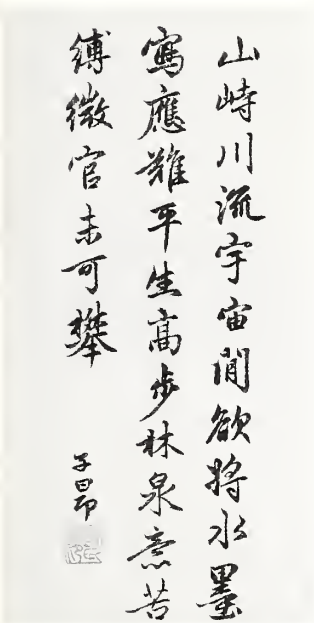 山峙川流宇宙間欲將水墨
寫應難平生高步林泉意苦
縛微官未可攀
子昂